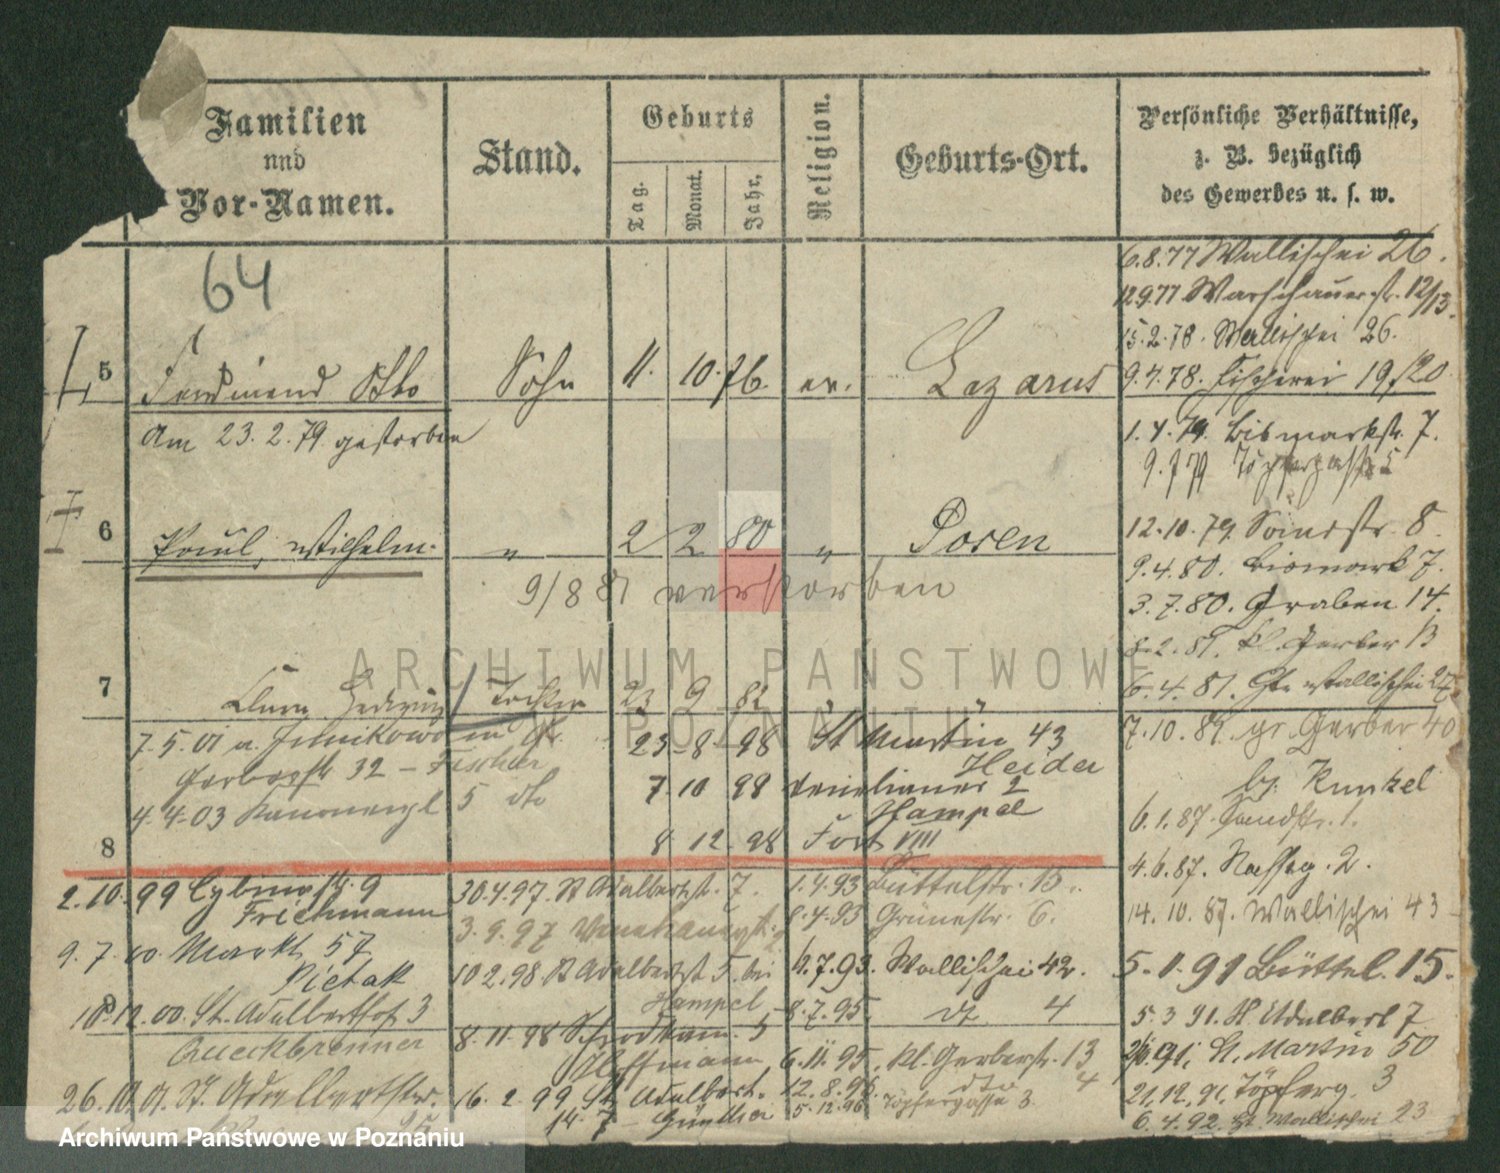 Familien
und
Vor-Namen.
Stand.
Geburts
Tag.
Monat.
Jahr.
Religion.
Geburts-Ort.
Persönliche Verhältnisse,
z. B. bezüglich
des Gewerbes u. s. w.
64
5 Ferdinand Otto Sohn 11. 10. 76. ev. Lazarus
Am 23. 2. 79 gestorben
6 Paul, Wilhelm. " 2 2 80 " Posen
9/8 81 verstorben
7 Clara Hedwig Tochter 23 9 82 " "
7.5.01 n. Junikowo
Gerberstr 32 – Fischer
4.4.03 Kanonenpl 5 dto
23 8 98 St Martin 43
Heider
7 10 98 Venetianer 2
Hampel
8 12 98 Fort VIII
8
2.10.99 Cybinastr. 9
Friehmann
9.7.00 Markt 57
Pietak
9
10.12.00. St. Adalberthof 3
Queckbrenner
26.10.01. St. Adalbertstr.
25
30.4.97. St Adalbertst. 7.
3.9.97
10 2.98. St Adalbertst 5. bei
Hampel
8.11.98 Schrodkam. 5
Hoffmann
16. 2. 99 St. Adalbert.
14. 7 – Günther
1.4.93 Büttelstr. 13.
8.4.93 Grünestr. 6.
4.7.93. Wallischei 42.
8.7.95. dt 4
6.11.95. kl. Gerberstr. 13
12.8.96. dto 4
5.12.96 Töpfergasse 3.
6.8.77 Wallischei 26.
12.9.77 Warschauerstr. 12/13.
15.2.78. Wallischei 26.
9.4.78. Fischerei 19/20
1.4.79. Bismarkstr. 7.
9.7 79 Töpfergasse 5
12.10.79. Sandstr. 8.
9.4.80. Bismark 7.
3.7.80. Graben 14.
8.2.81. kl. Gerber 13
6.4.81. Gr. Wallischei
7.10.81. gr. Gerber 40
by. Kunkel
6.1.87. Sandstr. 1.
4.6.87. Nasseg. 2.
14.10.87. Wallischei 43
5.1.91 Büttel. 15.
5.3 91. St. Adalbert 7
91. St. Martin 50
21.12.91. Töpferg. 3
6.4.92. Wallischei 23
ARCHIWUM PAŃSTWOWE
W POZNANIU
Archiwum Państwowe w Poznaniu